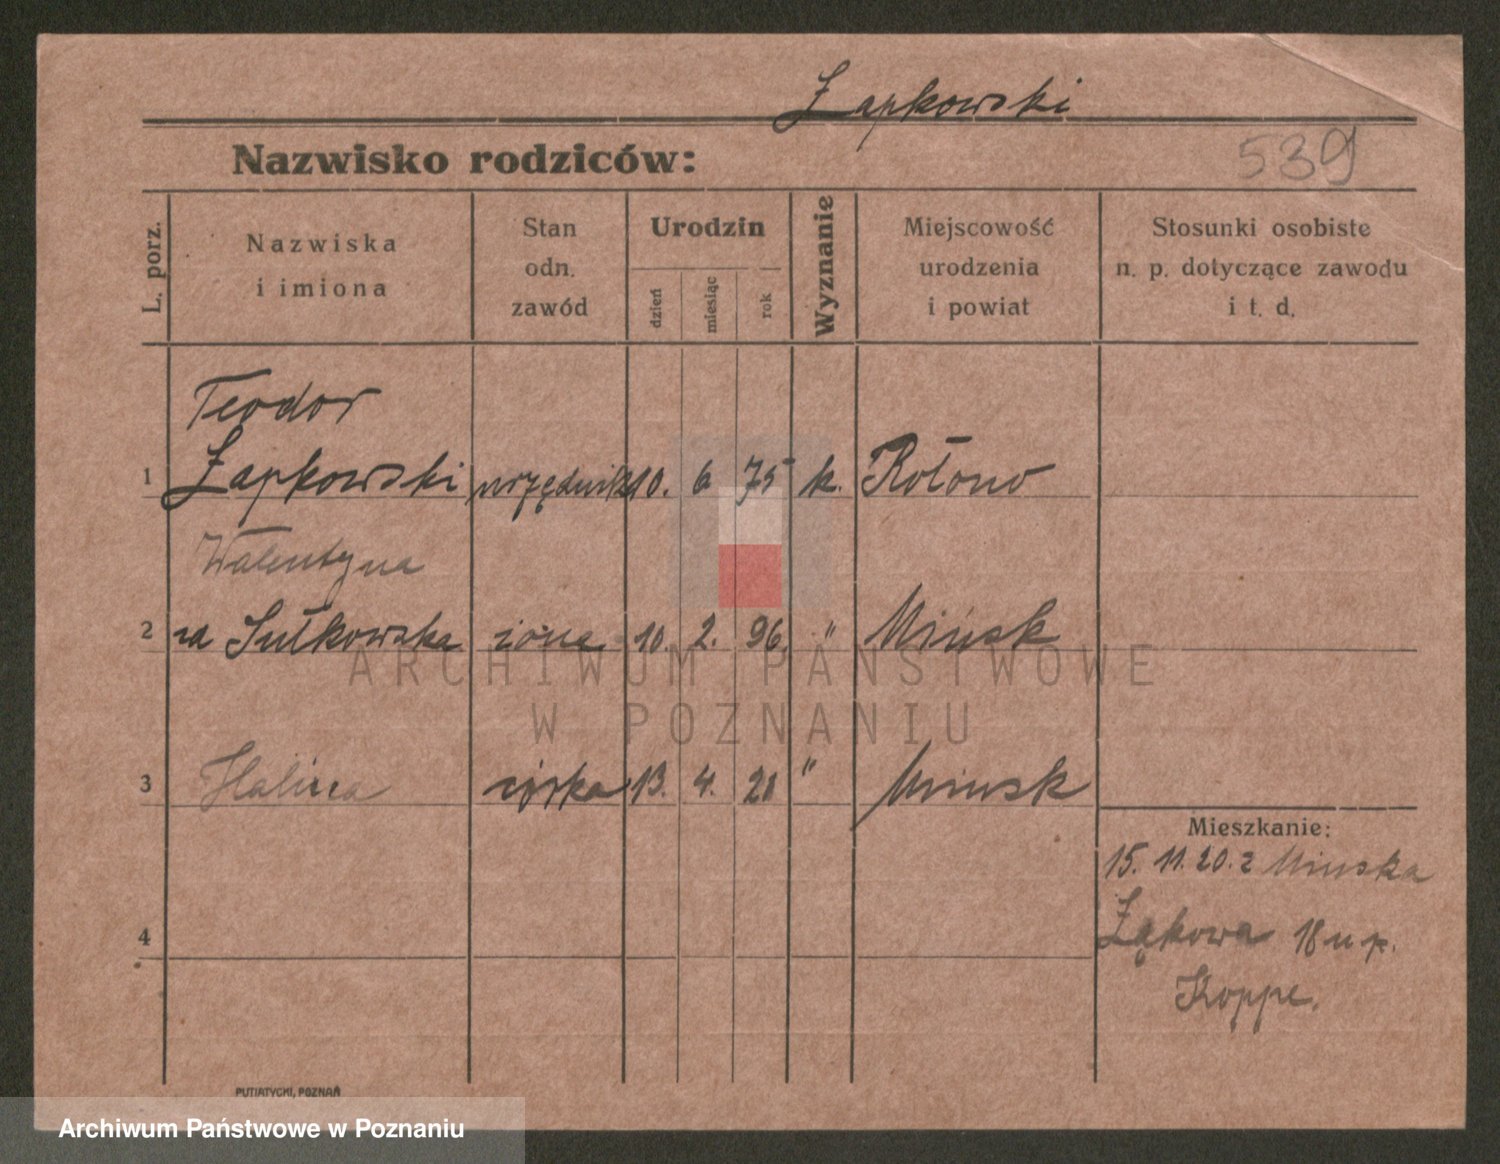 Żapkowski
Nazwisko rodziców:
539
L. porz.
Nazwiska
i imiona
Stan
odn.
zawód
Urodzin
dzień
miesiąc
rok
Wyznanie
Miejscowość
urodzenia
i powiat
Stosunki osobiste
n. p. dotyczące zawodu
i t. d.
Teodor
1 Żapkowski urzędnik 10. 6 75 k. Rołowo
Walentyna
2 Sułkowska żona 10. 2. 96. " Mińsk
3 Halina córka 13. 4. 20 " Minsk
Mieszkanie:
15. 11. 20. z Minska
Łąkowa 18 u p.
Koppe.
4
PUTIATYCKI, POZNAŃ
ARCHIWUM PAŃSTWOWE
W POZNANIU
Archiwum Państwowe w Poznaniu